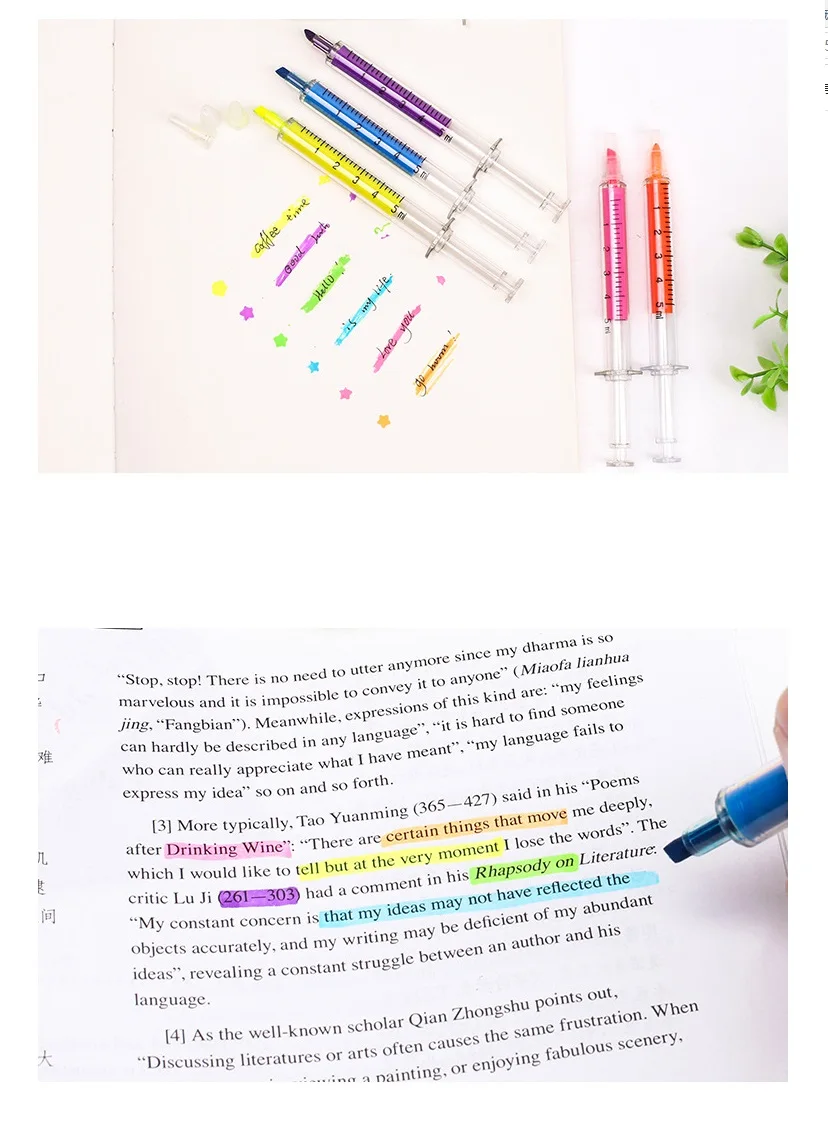 1
2
3
4
5 ml
1
2
3
4
5 ml
coffee time
Good luck
Hello!
is my life.
Love you
go home!
“Stop, stop! There is no need to utter anymore since my dharma is so
marvelous and it is impossible to convey it to anyone” (Miaofa lianhua
jing, “Fangbian”). Meanwhile, expressions of this kind are: “my feelings
can hardly be described in any language”, “it is hard to find someone
who can really appreciate what I have meant”, “my language fails to
express my idea” so on and so forth.
[3] More typically, Tao Yuanming (365—427) said in his “Poems
after Drinking Wine”: “There are certain things that move me deeply,
which I would like to tell but at the very moment I lose the words”. The
critic Lu Ji (261—303) had a comment in his Rhapsody on Literature:
“My constant concern is that my ideas may not have reflected the
objects accurately, and my writing may be deficient of my abundant
ideas”, revealing a constant struggle between an author and his
language.
[4] As the well-known scholar Qian Zhongshu points out,
“Discussing literatures or arts often causes the same frustration. When
viewing a painting, or enjoying fabulous scenery,
难
间
大